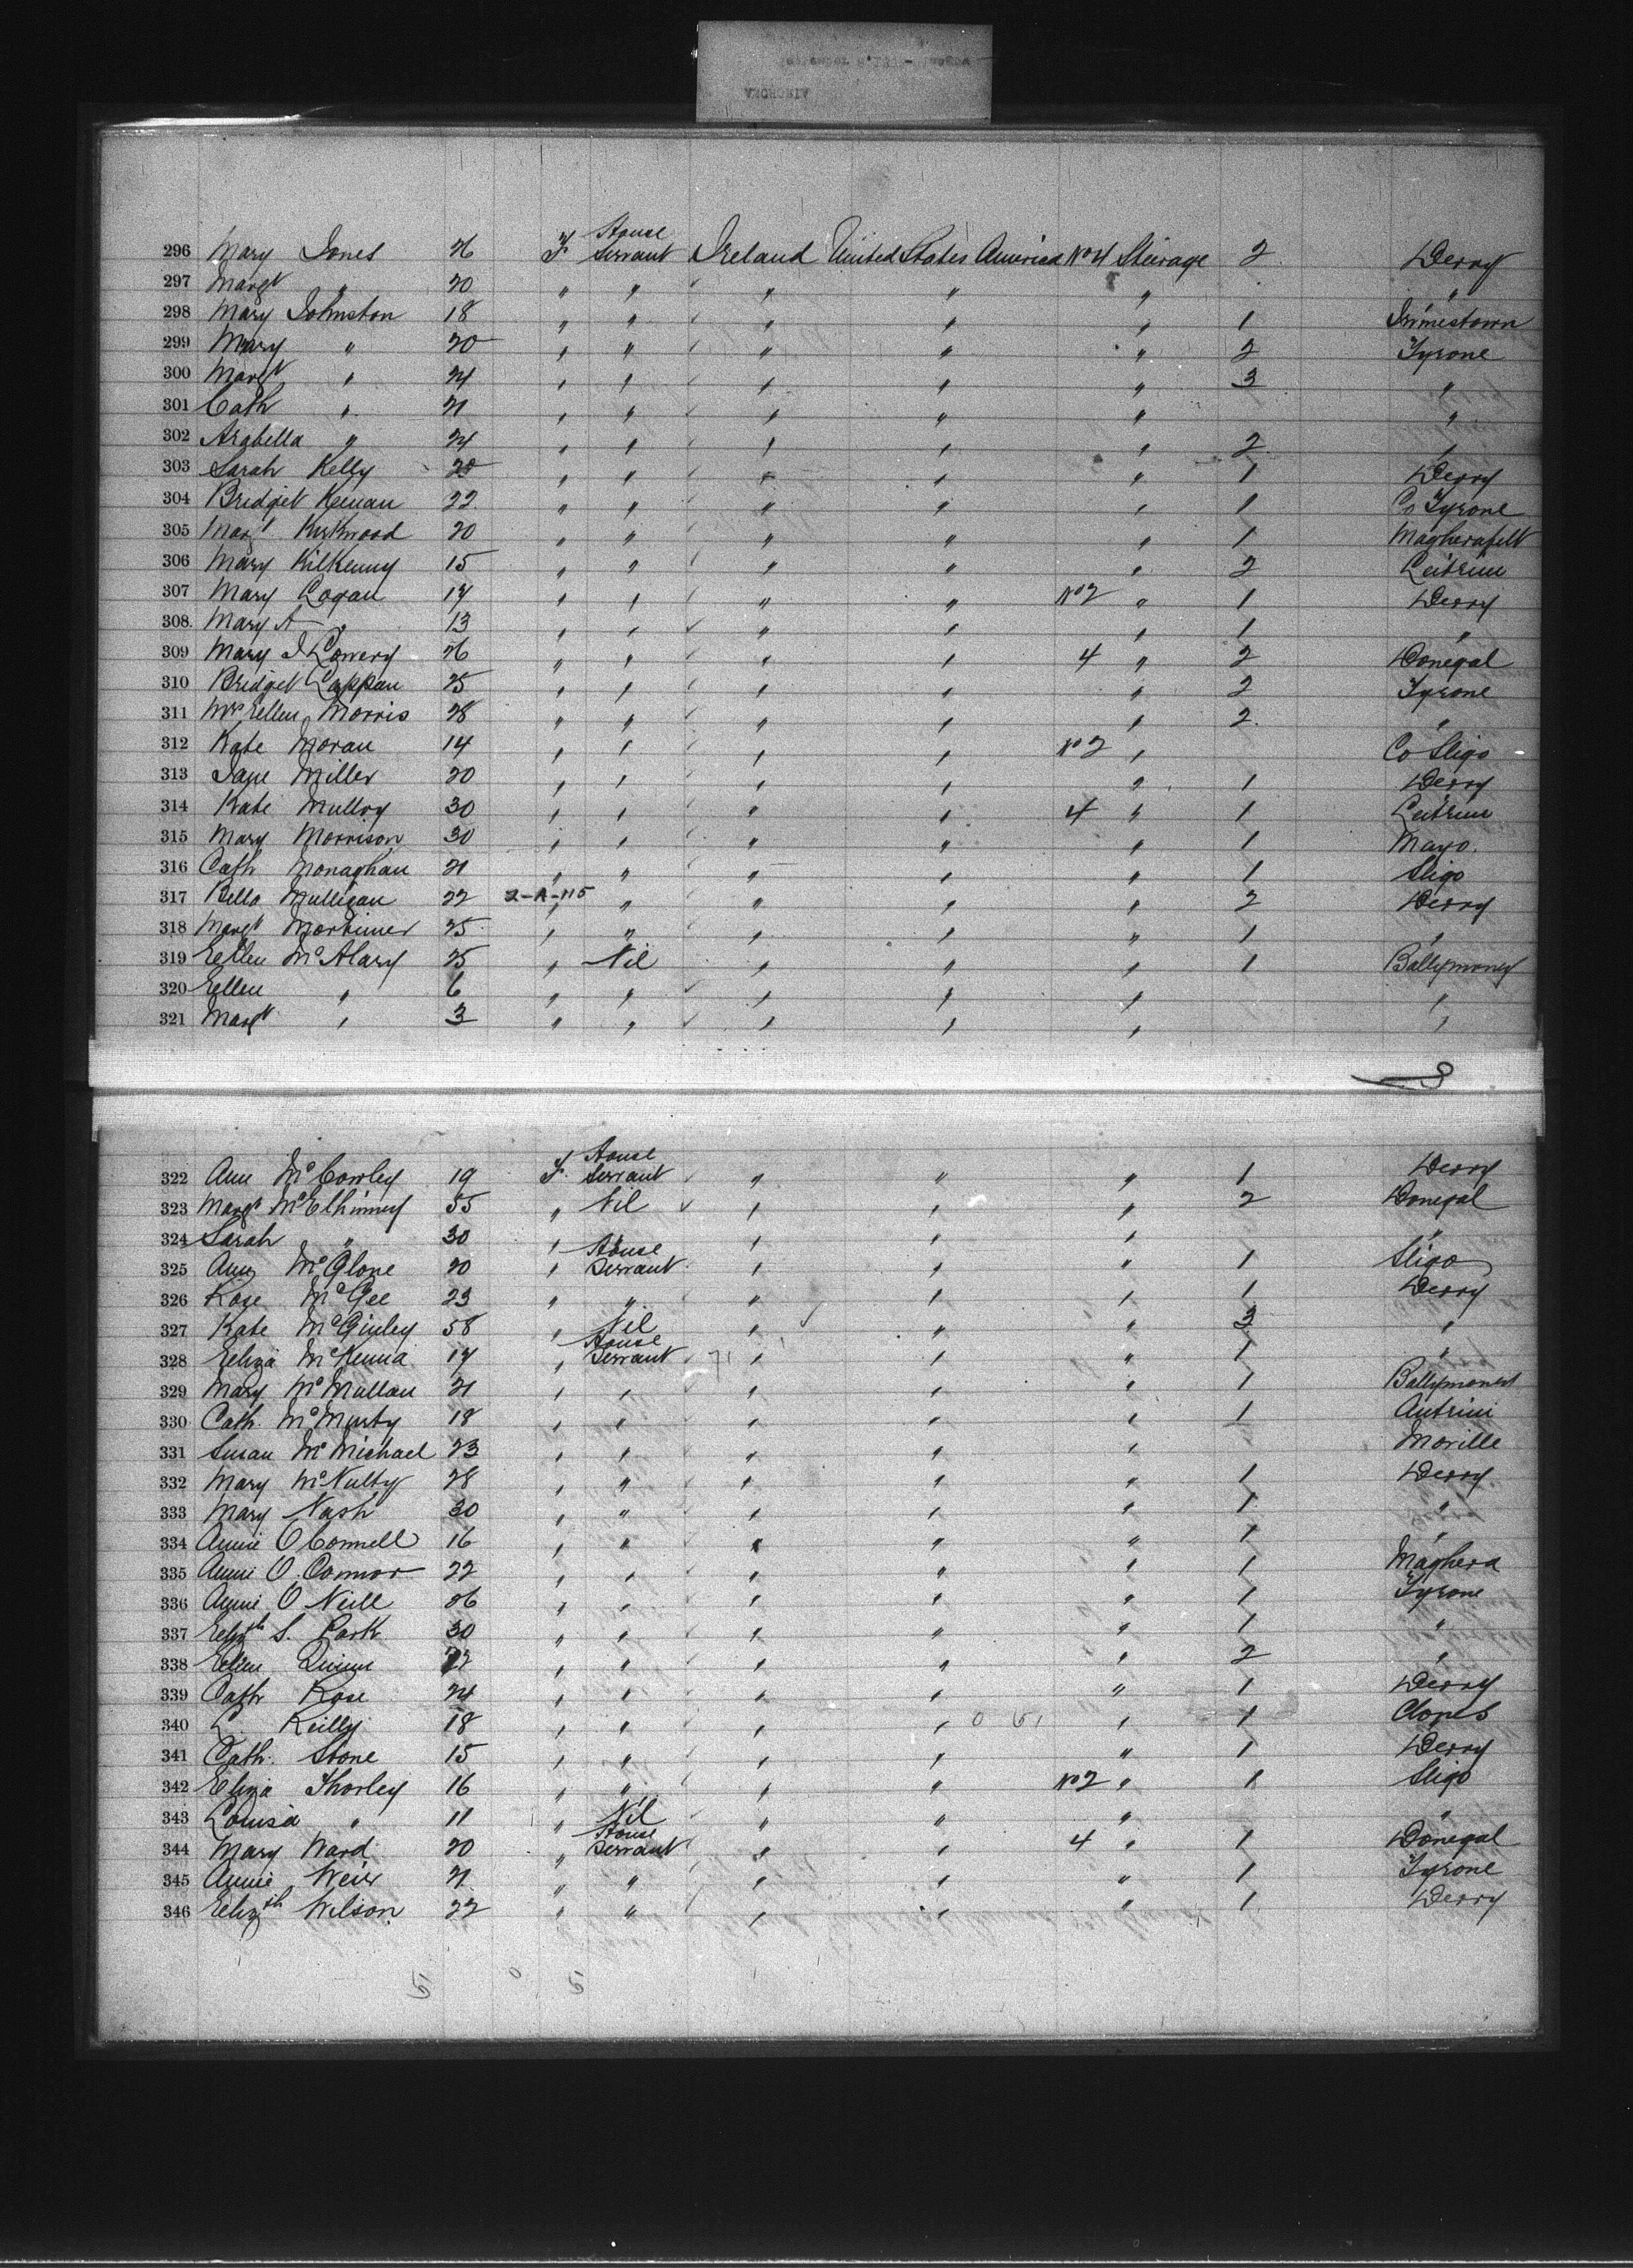 296 Mary Jones 26 F House Servant Ireland United States America No 4 Steirage 2 Derry
297 Margt " 20 " " " " " "
298 Mary Johnston 18 " " " " " 1 Irvinestown
299 Mary " 20 " " " " " 2 Tyrone
300 Margt " 24 " " " " " 3 "
301 Cath " 21 " " " " " "
302 Arabella " 24 " " " " " 2 "
303 Sarah Kelly 20 " " " " " 1 Derry
304 Bridget Keenan 22 " " " " " 1 Co Tyrone
305 Margt Kirkwood 20 " " " " " 1 Magherafelt
306 Mary Kilkenny 15 " " " " " 2 Leitrim
307 Mary Logan 17 " " " " No 2 " 1 Derry
308. Mary A " 13 " " " " " 1 "
309 Mary J Lowery 26 " " " " 4 " 2 Donegal
310 Bridget Lappan 25 " " " " " 2 Tyrone
311 Mrs Ellen Morris 28 " " " " " 2. "
312 Kate Moran 14 " " " " No 2 " Co Sligo
313 Jane Miller 20 " " " " " 1 Derry
314 Kate Mulloy 30 " " " " 4 " 1 Leitrim
315 Mary Morrison 30 " " " " " 1 Mayo.
316 Cath Monaghan 21 " " " " " 1 Sligo
317 Bella Mulligan 22 2-A-115 " " " " " 2 Derry
318 Margt Mortimer 25 " " " " " 1 "
319 Ellen McAlary 25 " Nil " " " 1 Ballymoney
320 Ellen " 6 " " " " " "
321 Margt " 3 " " " " " "
322 Ann McCorley 19 F. House Servant " " " 1 Derry
323 Margt McElhinney 55 " Nil " " " 2 Donegal
324 Sarah " 30 " " " " "
325 Ann McGlone 20 " House Servant " " " 1 Sligo
326 Rose McGee 23 " " " " " 1 Derry
327 Kate McGinley 58 " Nil " " " 3 "
328 Eliza McKenna 17 " House Servant " " " 1 "
329 Mary McMullan 21 " " " " " 1 Ballymoney
330 Cath. McMurty 18 " " " " " 1 Antrim
331 Susan McMichael 23 " " " " " Moville
332 Mary McNulty 28 " " " " " 1 Derry
333 Mary Nash 30 " " " " " 1 "
334 Annie O'Connell 16 " " " " " 1 "
335 Annie O. Connor 22 " " " " " 1 Maghera
336 Annie O'Neill 26 " " " " " 1 Tyrone
337 Elizth S. Park 30 " " " " " 1 "
338 Ellen Quinn 22 " " " " " 2 "
339 Cath Rose 24 " " " " " 1 Derry
340 L. Reilly 18 " " " " " 1 Clones
341 Cath. Stone 15 " " " " " 1 Derry
342 Eliza Thorley 16 " " " " No 2 " 1 Sligo
343 Louisa " 11 " Nil " " " "
344 Mary Ward 20 " House Servant " " 4 " 1 Donegal
345 Annie Weir 21 " " " " " 1 Tyrone
346 Elizth Wilson 22 " " " " " 1 Derry